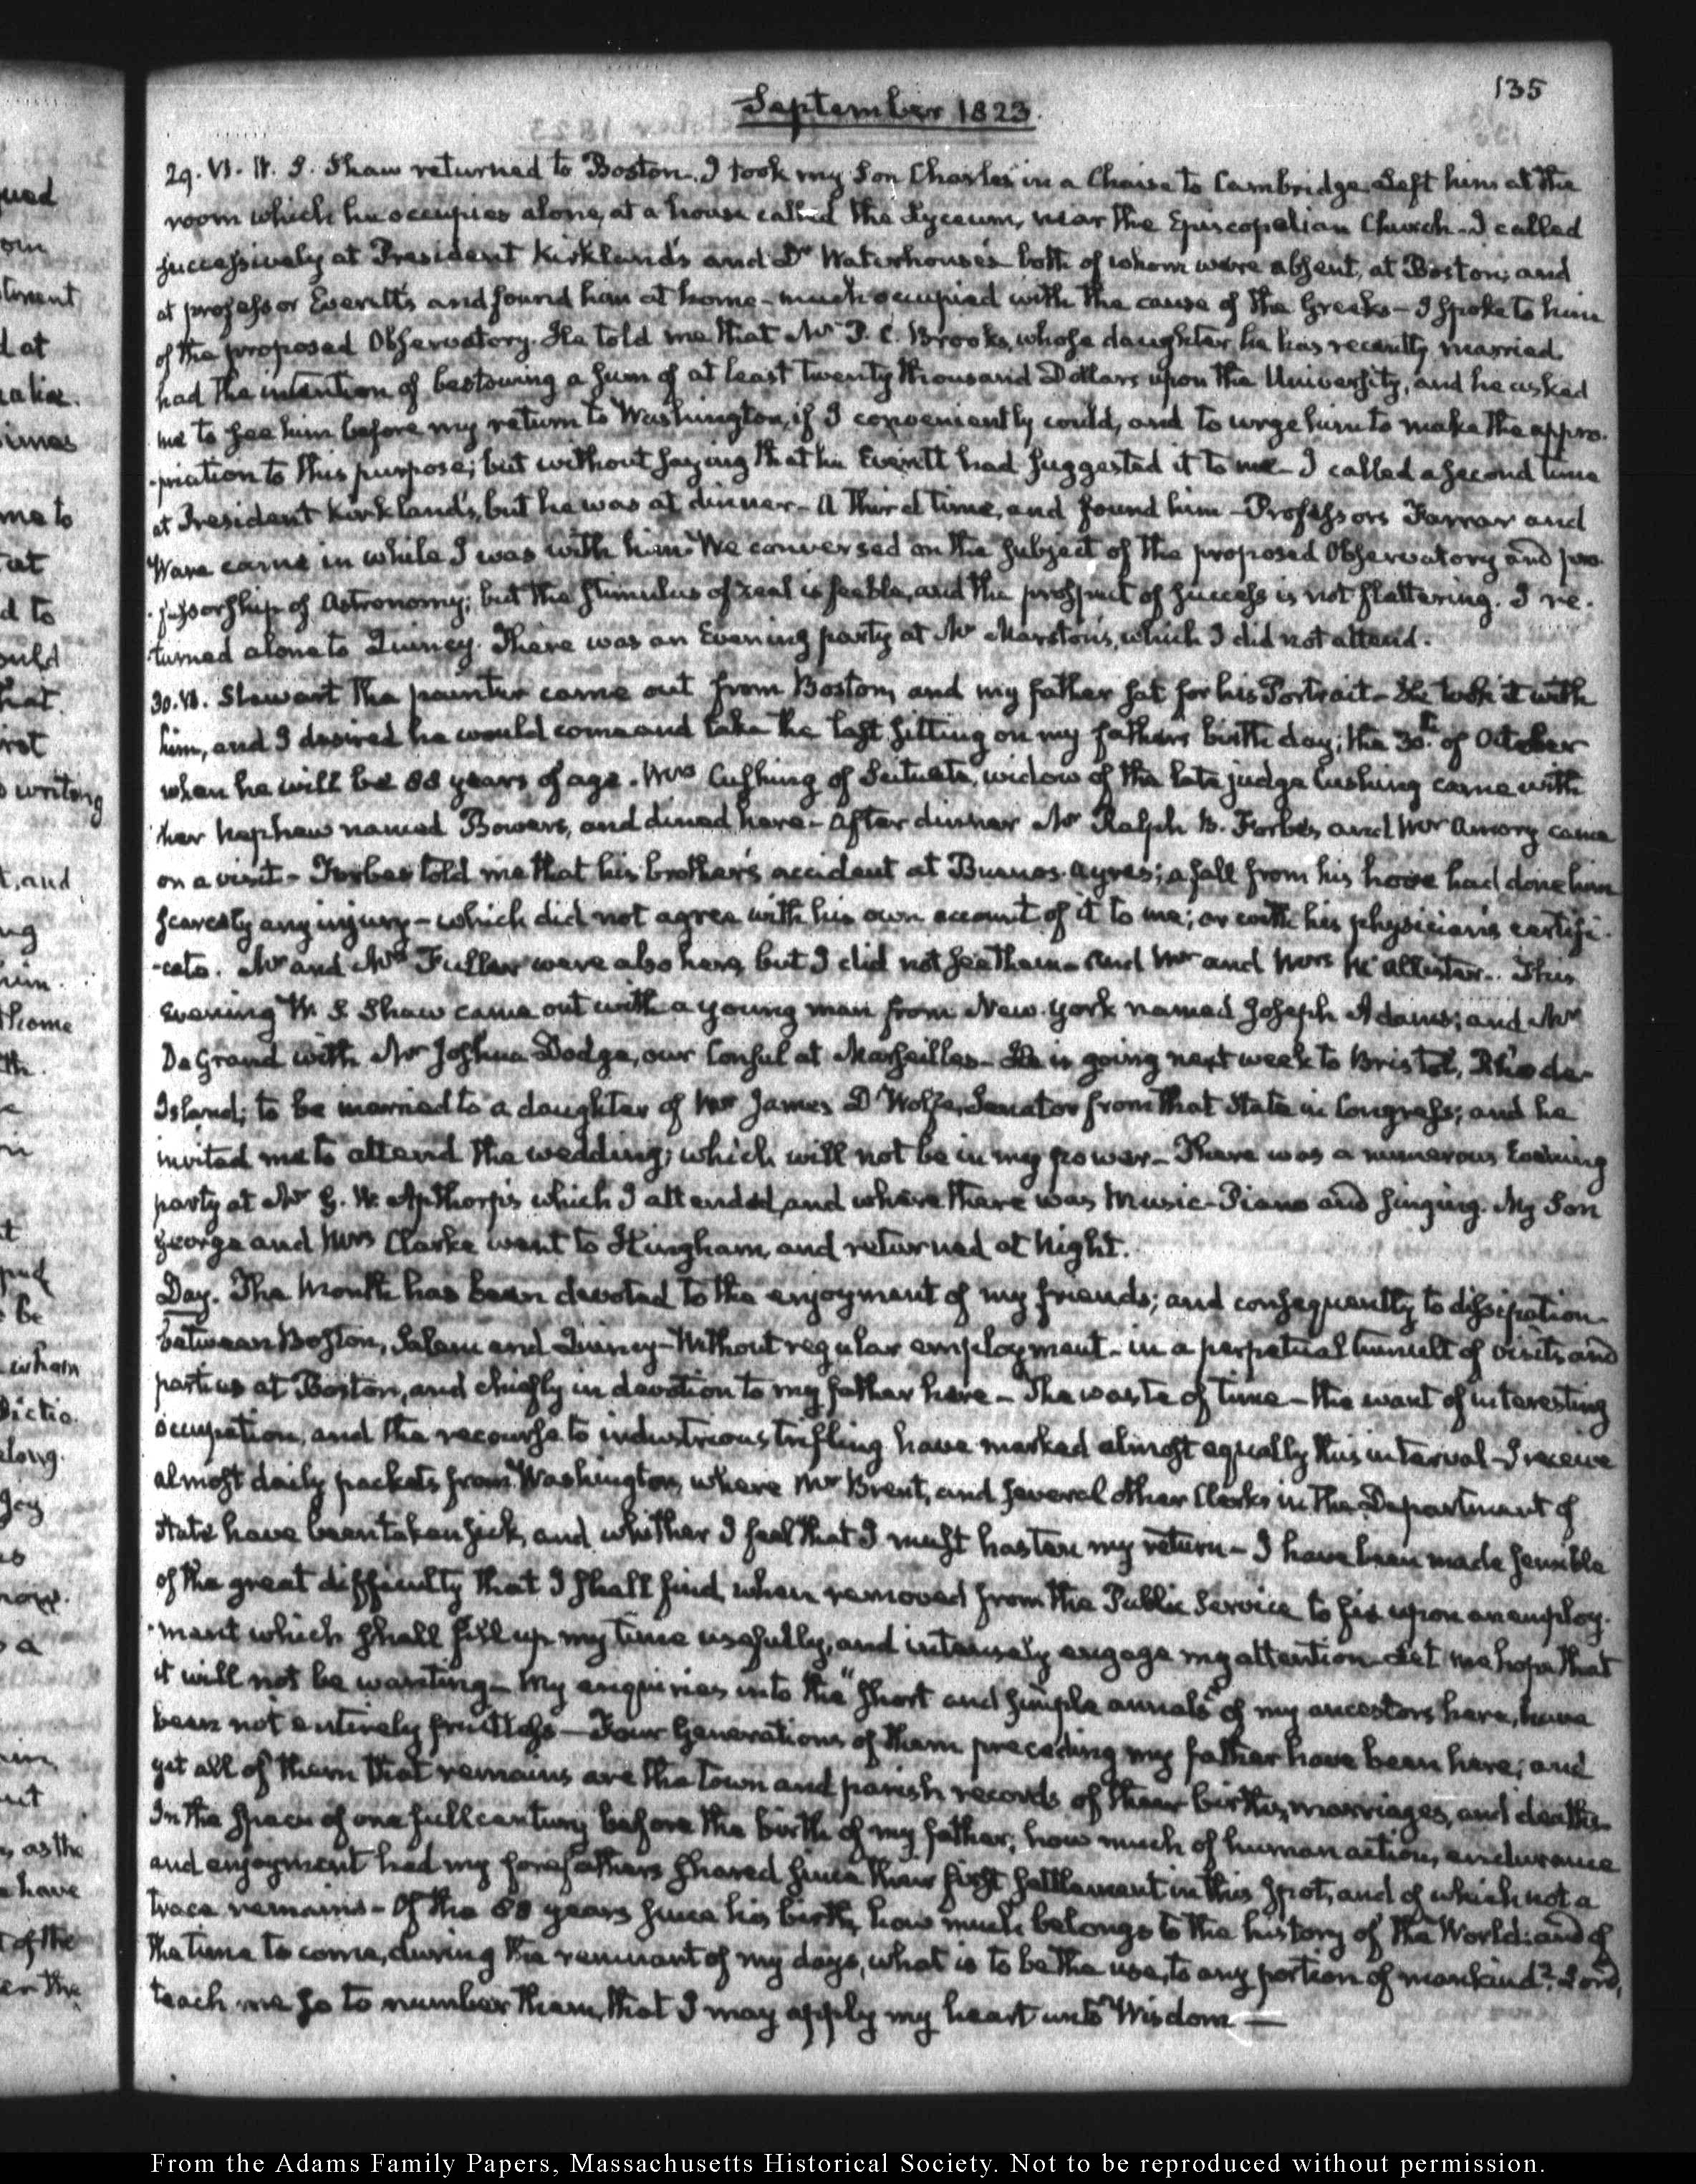 135
September 1823.
29. VI. W. S. Shaw returned to Boston. I took my Son Charles in a Chaise to Cambridge. Left him at the
room which he occupies alone, at a house called the Lyceum, near the Episcopalian Church. I called
successively at President Kirkland's and Dr Waterhouse's both of whom were absent, at Boston; and
at professor Everett's and found him at home - much occupied with the cause of the Greeks - I spoke to him
of the proposed Observatory. He told me that Mr P. C. Brooks, whose daughter he has recently married
had the intention of bestowing a sum of at least twenty thousand Dollars upon the University, and he asked
me to see him before my return to Washington, if I conveniently could, and to urge him to make the appro-
-priation to this purpose; but without saying that he Everett had suggested it to me - I called a second time
at President Kirkland's, but he was at dinner - A third time, and found him - Professors Farrar and
Ware came in while I was with him. We conversed on the subject of the proposed Observatory and pro-
-fessorship of Astronomy; but the stimulus of zeal is feeble, and the prospect of success is not flattering. I re-
-turned alone to Quincy. There was an Evening party at Mr Marston's, which I did not attend.
30. VI. Stewart the painter came out from Boston, and my father sat for his Portrait - He took it with
him, and I desired he would come and take the last sitting on my fathers birth day; the 30th of October
when he will be 88 years of age. Mrs Cushing of Scituate, widow of the late judge Cushing came with
her nephew named Bowers, and dined here - After dinner Mr Ralph B. Forbes, and Mr Amory came
on a visit - Forbes told me that his brother's accident at Buenos-Ayres; a fall from his horse had done him
scarcely any injury - which did not agree with his own account of it to me; or with his physician's certifi-
-cate. Mr and Mrs Fuller were also here, but I did not see them - And Mr and Mrs McAllister. This
Evening W. S. Shaw came out with a young man from New-York named Joseph Adams; and Mr
De Grand with Mr Joshua Dodge, our Consul at Marseilles - He is going next week to Bristol, Rhode-
Island; to be married to a daughter of Mr James D'Wolfe, Senator from that State in Congress; and he
invited me to attend the wedding; which will not be in my power - There was a numerous Evening
party at Mr G. W. Apthorp's which I attended, and where there was Music - Piano and singing. My Son
George and Mrs Clarke went to Hingham, and returned at Night.
Day. The Month has been devoted to the enjoyment of my friends; and consequently to dissipation
between Boston, Salem and Quincy - Without regular employment - in a perpetual tumult of visits and
parties at Boston, and chiefly in devotion to my father here - The waste of time - the want of interesting
occupation, and the recourse to industrious trifling have marked almost equally this interval - I receive
almost daily packets from Washington, where Mr Brent, and several other Clerks in the Department of
State have been taken sick, and whither I feel that I must hasten my return - I have been made sensible
of the great difficulty that I shall find, when removed from the Public Service to fix upon an employ-
-ment which shall fill up my time usefully, and intensely engage my attention. Let me hope that
it will not be wanting - My enquiries into the "short and simple annals" of my ancestors here, have
been not entirely fruitless - Four Generations of them preceding my father have been here; and
yet all of them that remains are the town and parish records of their births, marriages, and deaths
In the space of one full century before the birth of my father; how much of human action, endurance
and enjoyment had my forefathers shared since their first settlement in this spot, and of which not a
trace remains - Of the 88 years since his birth, how much belongs to the history of the World: and of
the time to come, during the remnant of my days, what is to be the use, to any portion of mankind? Lord,
teach me so to number them, that I may apply my heart unto Wisdom —
From the Adams Family Papers, Massachusetts Historical Society. Not to be reproduced without permission.